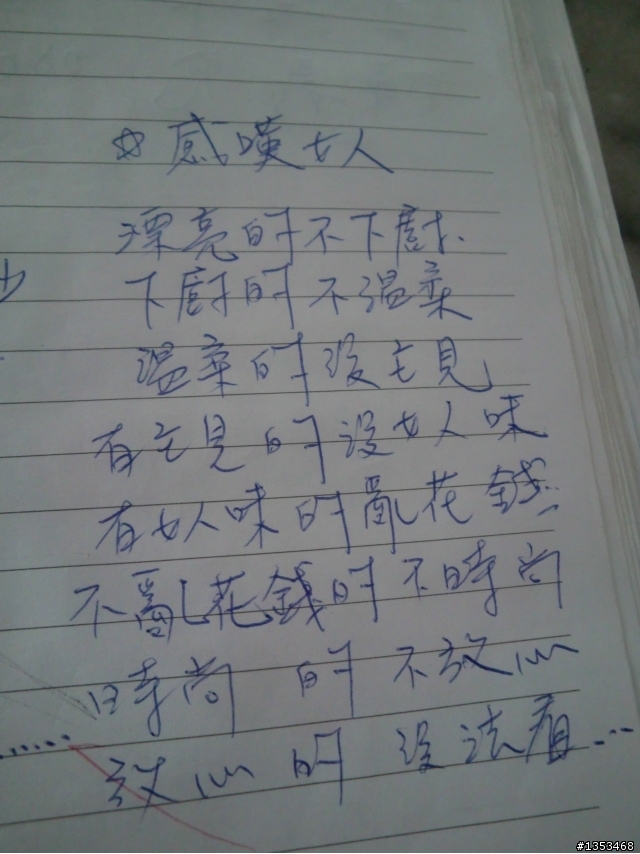 ☆感嘆女人
漂亮的不下廚.
下廚的不溫柔
溫柔的沒主見
有主見的沒女人味
有女人味的亂花錢...
不亂花錢的不時尚
時尚的不放心
放心的沒法看...
#1353468